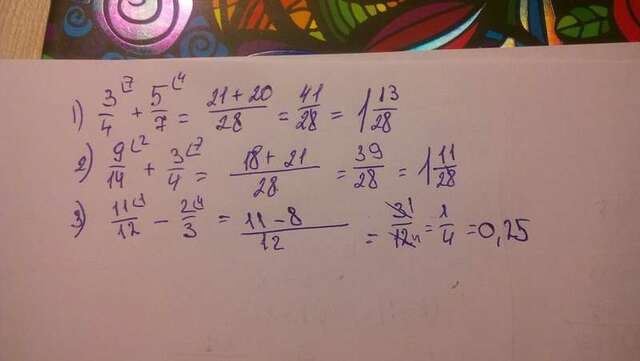 1) 3/4 ⌊7 + 5/7 ⌊4 = 21+20/28 = 41/28 = 1 13/28
2) 9/14 ⌊2 + 3/4 ⌊7 = 18+21/28 = 39/28 = 1 11/28
3) 11/12 ⌊1 − 2/3 ⌊4 = 11−8/12 = 3 1/12 4 = 1/4 = 0,25